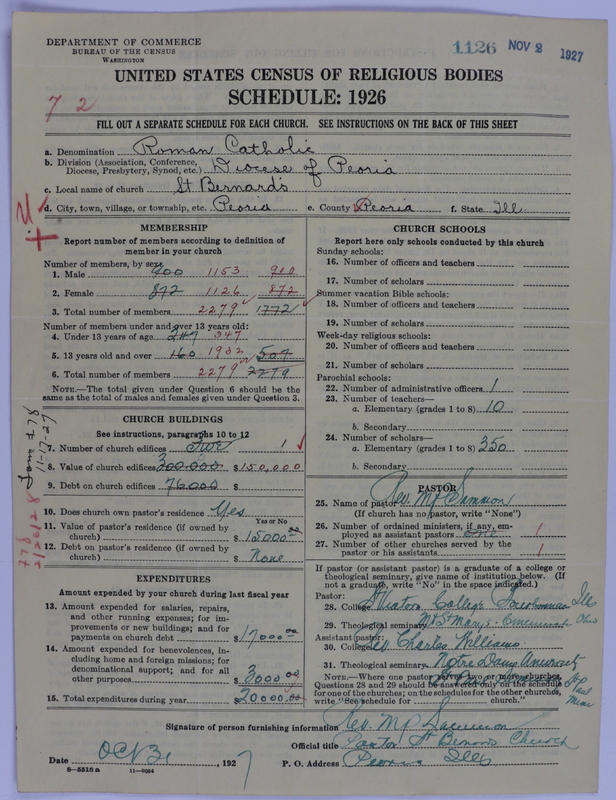 DEPARTMENT OF COMMERCE
BUREAU OF THE CENSUS
WASHINGTON
1126 NOV 2 1927
UNITED STATES CENSUS OF RELIGIOUS BODIES
SCHEDULE: 1926
7 2
FILL OUT A SEPARATE SCHEDULE FOR EACH CHURCH. SEE INSTRUCTIONS ON THE BACK OF THIS SHEET
a. Denomination Roman Catholic
b. Division (Association, Conference, Diocese, Presbytery, Synod, etc.) Diocese of Peoria
c. Local name of church St Bernard's
d. City, town, village, or township, etc. Peoria e. County Peoria f. State Ill.
MEMBERSHIP
Report number of members according to definition of
member in your church
Number of members, by sex:
1. Male 900 1153 900
2. Female 872 1126 872
3. Total number of members 2279 1772
Number of members under and over 13 years old:
4. Under 13 years of age 347 347
5. 13 years old and over 160 1932 507
6. Total number of members 2279 2279
NOTE.—The total given under Question 6 should be the
same as the total of males and females given under Question 3.
CHURCH BUILDINGS
See instructions, paragraphs 10 to 12
7. Number of church edifices Two 1
8. Value of church edifices 300.000 $150,000
9. Debt on church edifices 76000 $
10. Does church own pastor's residence Yes
Yes or No
11. Value of pastor's residence (if owned by
church) $15000.00
12. Debt on pastor's residence (if owned by
church) $ None
EXPENDITURES
Amount expended by your church during last fiscal year
13. Amount expended for salaries, repairs,
and other running expenses; for im-
provements or new buildings; and for
payments on church debt $17000.00
14. Amount expended for benevolences, in-
cluding home and foreign missions; for
denominational support; and for all
other purposes $3000.00
15. Total expenditures during year $20000.00
CHURCH SCHOOLS
Report here only schools conducted by this church
Sunday schools:
16. Number of officers and teachers
17. Number of scholars
Summer vacation Bible schools:
18. Number of officers and teachers
19. Number of scholars
Week-day religious schools:
20. Number of officers and teachers
21. Number of scholars
Parochial schools:
22. Number of administrative officers 1
23. Number of teachers—
a. Elementary (grades 1 to 8) 10
b. Secondary
24. Number of scholars—
a. Elementary (grades 1 to 8) 350
b. Secondary
PASTOR
25. Name of pastor Rev. M P
(If church has no pastor, write "None")
26. Number of ordained ministers, if any, em-
ployed as assistant pastors one 1
27. Number of other churches served by the
pastor or his assistants 1
If pastor (or assistant pastor) is a graduate of a college or
theological seminary, give name of institution below. (If
not a graduate, write "No" in the space indicated.)
Pastor:
28. College St Viators College Ills
29. Theological seminary Mt St Marys Cincinnati Ohio
Assistant (pastor:
30. College Rev Charles Williams
31. Theological seminary Notre Dame St Paul Minn
NOTE.—Where one pastor served two or more churches,
Questions 28 and 29 should be answered only on the schedule
for one of the churches; on the schedules for the other churches,
write "See schedule for church."
Signature of person furnishing information Rev. M P
Official title Pastor St Bernards Church
Date Oct 31, 1927 P. O. Address Peoria Ills
8—5518 a 11—9064